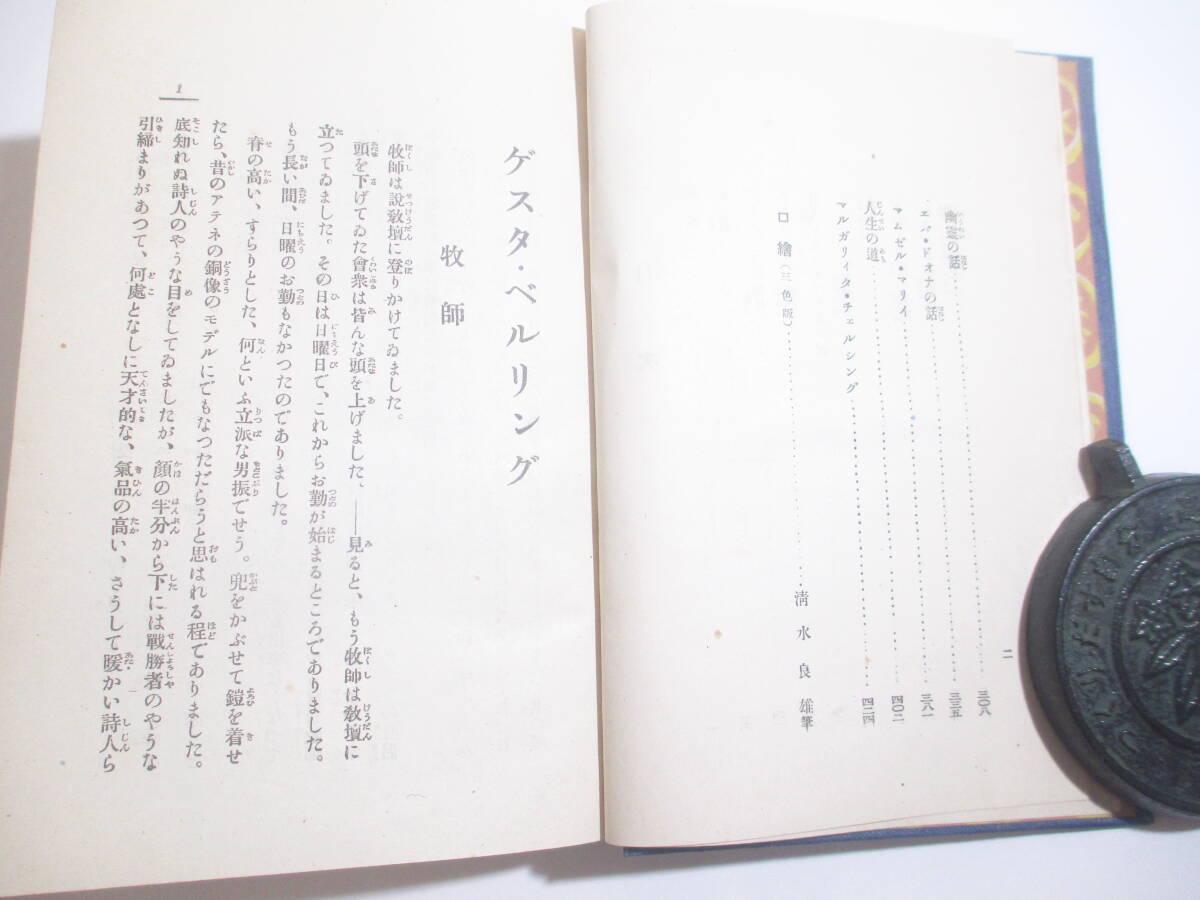 幽霊の話 三〇八
エバ・ドオナの話 三三五
アムゼル・マリイ 三八一
人生の道 四〇二
マルガリイタ・チェルシング 四二四
口繪(三色版) 清水良雄筆
二
ゲスタ・ベルリング
牧師
牧師は說敎壇に登りかけてゐました。
頭を下げてゐた會衆は皆んな頭を上げました、——見ると、もう牧師は敎壇に
立つてゐました。その日は日曜日で、これからお勤が始まるところでありました。
もう長い間、日曜のお勤もなかつたのでありました。
脊の高い、すらりとした、何といふ立派な男振でせう。兜をかぶせて鎧を着せ
たら、昔のアテネの銅像のモデルにでもなつただらうと思はれる程でありました。
底知れぬ詩人のやうな目をしてゐましたが、顔の半分から下には戰勝者のやうな
引締まりがあつて、何處となしに天才的な、氣品の高い、さうして暖かい詩人ら
1